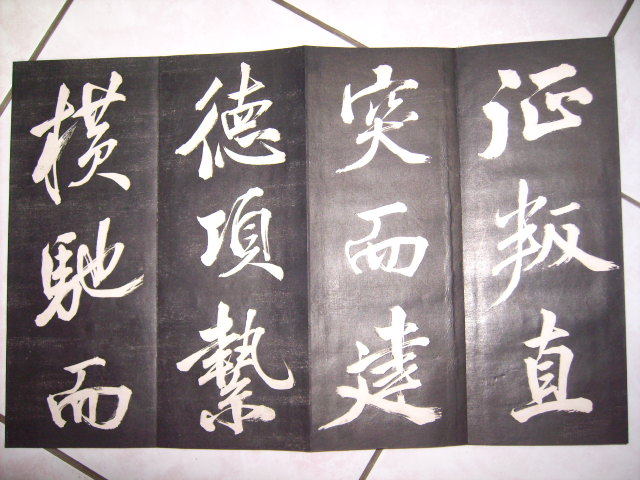 征叛直
突而建
德項縶
橫馳而